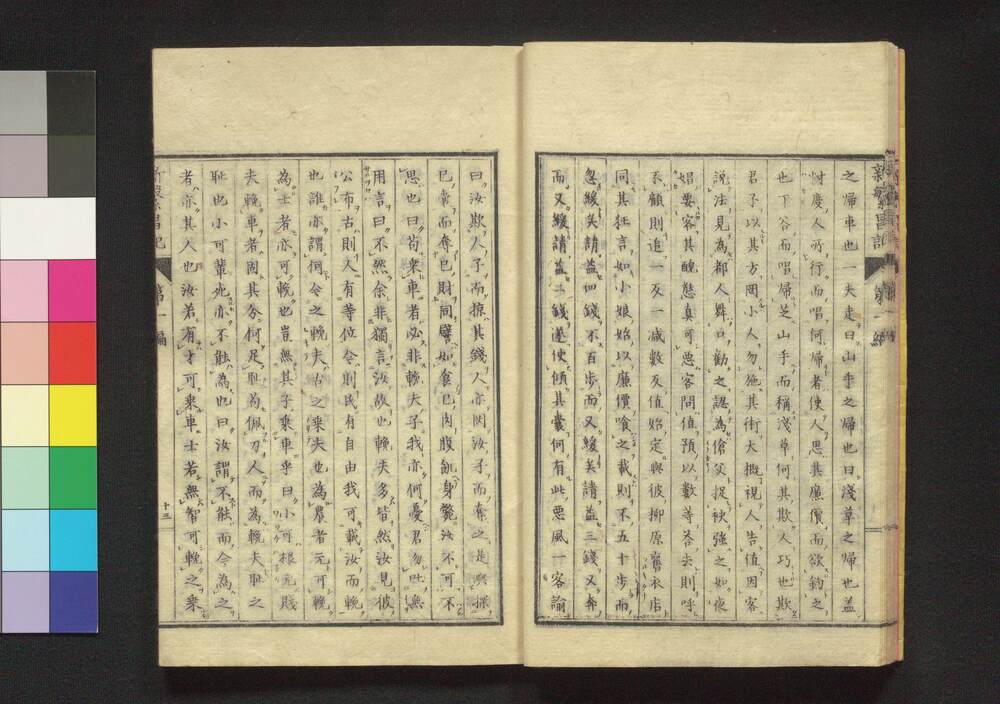 之帰車也一夫走曰山手之帰也曰淺草之帰也蓋
忖度人所行而唱何帰者使人思其廉價而欲釣之
也下谷而唱帰芝山手而稱淺草何其欺人巧也欺
君子以其方罔小人勿施其術大概視人告值因客
說法見為都人舞口勸之認為傖父捉袂強之如夜
娼要客其醜態真可惡客問值預以數等答去則呼
不顧則追一反一減數反值始定與彼柳原鬻衣店
同其狂言如小娘始以廉價喰之載則不五十步而
忽緩矣請益四錢不百步而又緩矣請益三錢又奔
而又緩請益二錢遂使傾其囊何有此惡風一客諭
曰汝欺人子而掠其錢人亦罔汝子而奪之是與探
己囊而奪己財同譬如食己肉腹飽身斃汝不可不
思也曰苟乘車者必非輓夫子我亦何憂君勿吐無
用言曰不然余非獨言汝故也輓夫多皆然汝見彼
公布古則人有等位今則民有自由我可載汝而輓
也誰亦謂何今之輓夫古之乘夫也為農者元可輓
為士者亦可輓也豈無其子乘車乎曰小可根元賤
夫輓車者固其分何足耻苟佩刀人而為輓夫耻之
耻也小可輩死亦不能為也曰汝謂不能而今為之
者亦其人也汝若有才可乘車士若無智可輓之乘
新繁昌記
第一編
十三